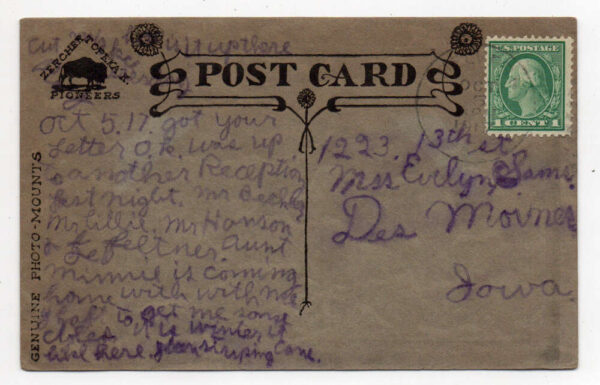 cut up here
ZERCHER, TOPEKA K.
PIONEERS
GENUINE PHOTO-MOUNTS
POST CARD
U.S. POSTAGE
1 CENT 1
Oct 5.17. got your
Letter O.K. was up
to another Reception
last night, Mr
Mr Lillie, Mr Hanson
& Feltner. Aunt
Minnie is coming
home with with me
to get me some
it is winter
here
1223. 13th st
Mss Evelyn Sams.
Des Moines
Iowa.